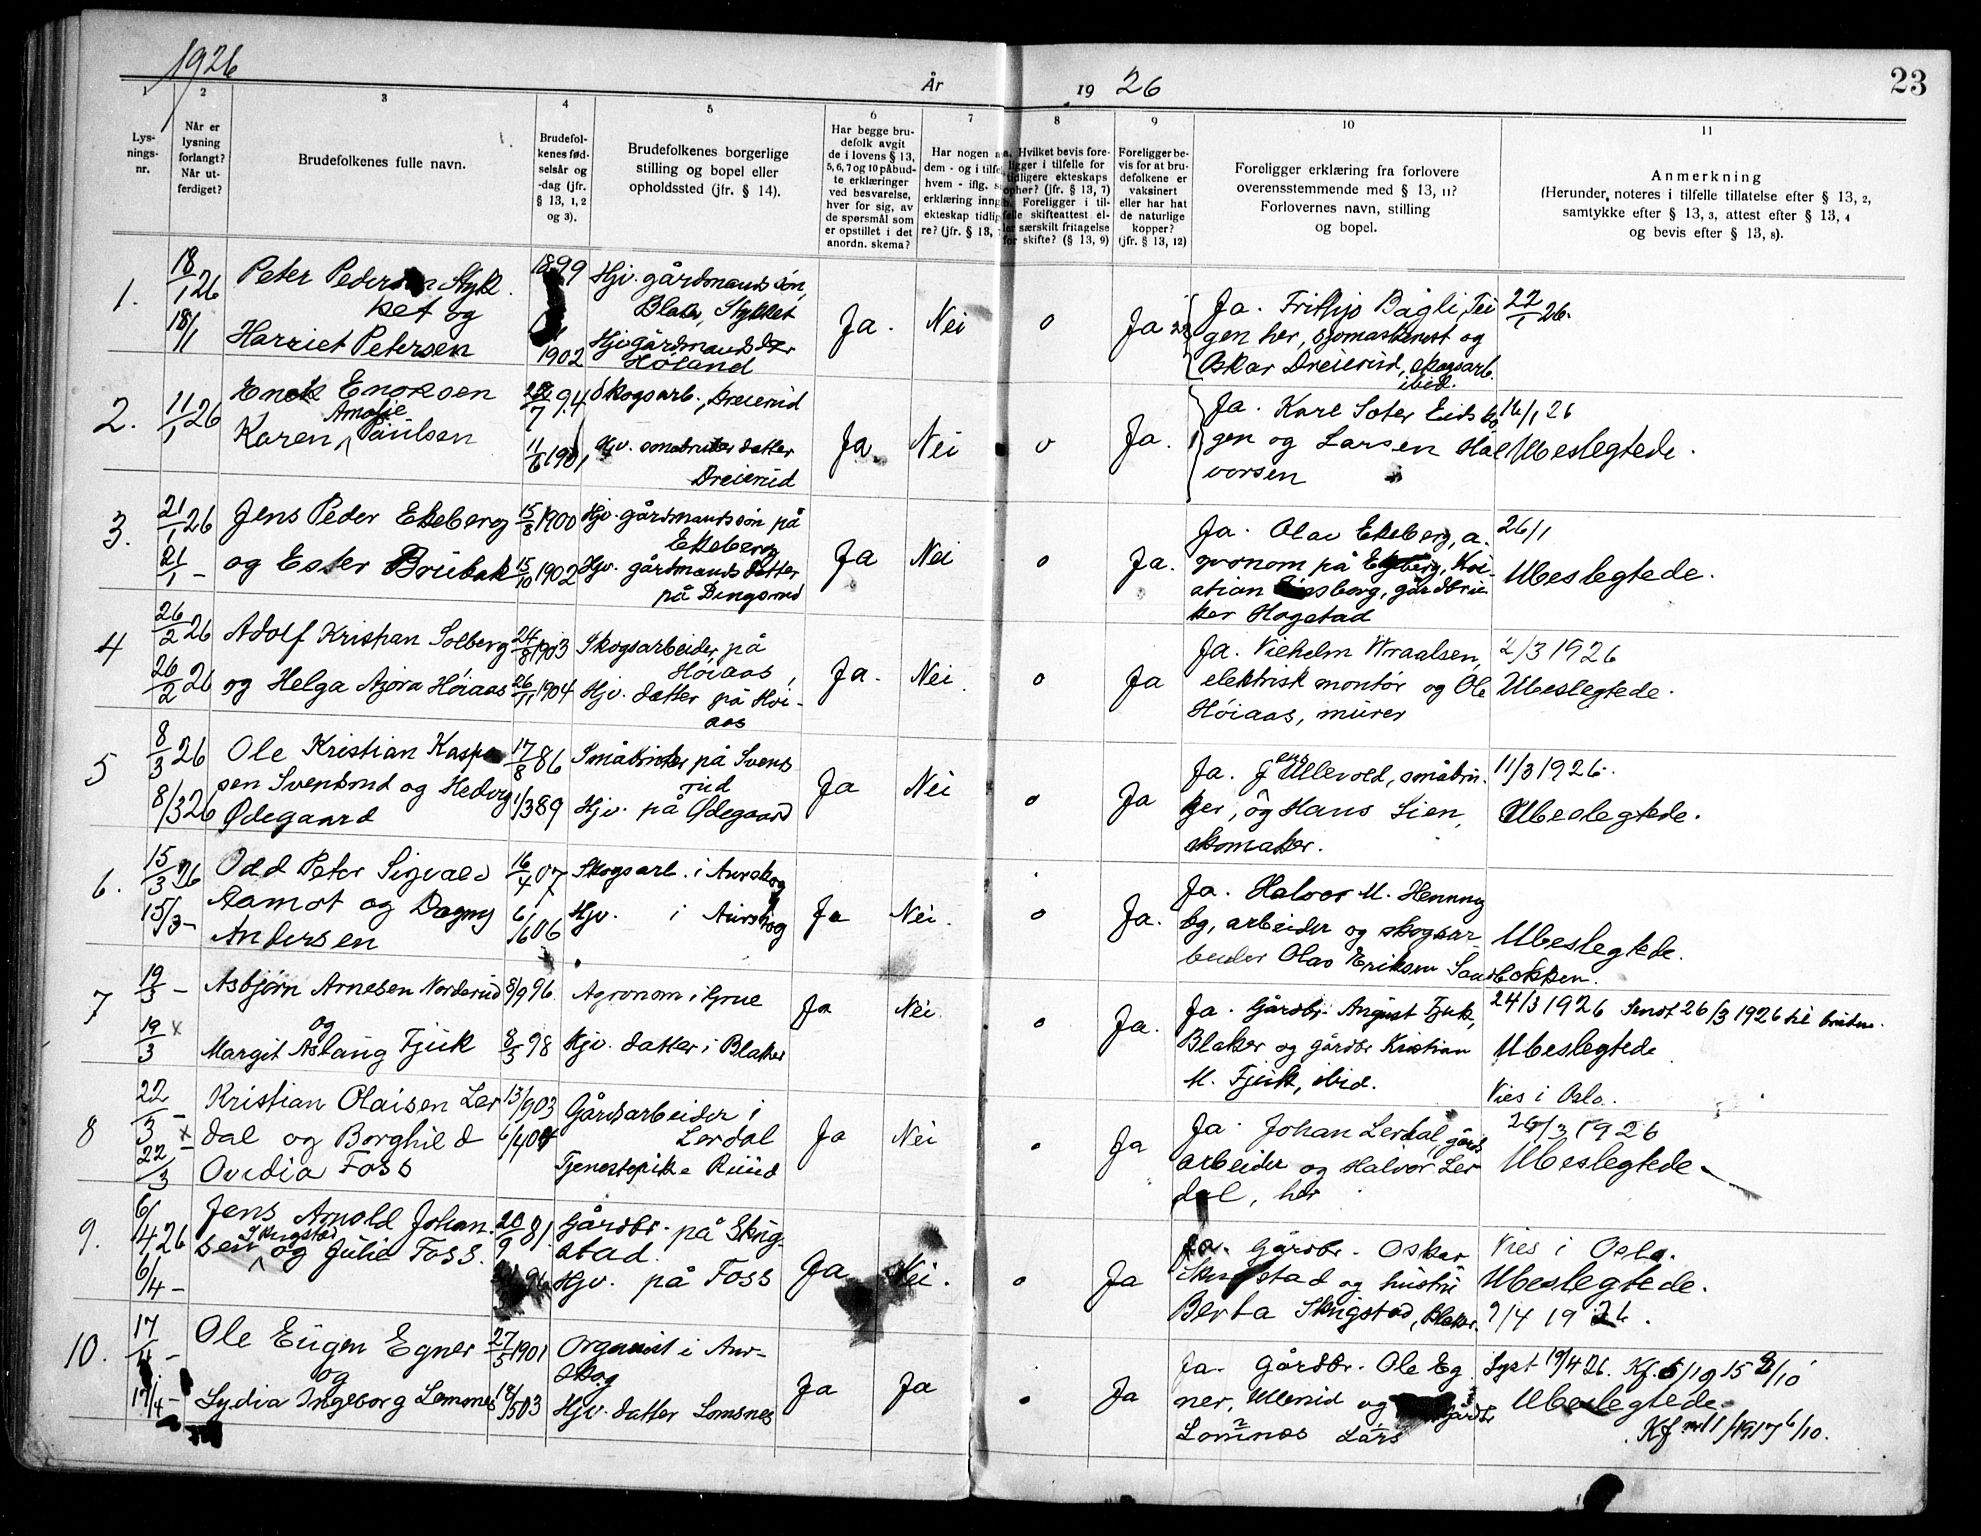 1926
År
19 26
23
1
2
3
4
5
6
7
8
9
10
11
Lys-
nings-
nr.
Når er
lysning
forlangt?
Når ut-
ferdiget?
Brudefolkenes fulle navn.
Brudefol-
kenes fød-
selsår og
-dag (jfr.
§ 13, 1, 2
og 3).
Brudefolkenes borgerlige
stilling og bopel eller
opholdssted (jfr. § 14).
Har begge bru-
defolk avgit
de i lovens § 13,
5, 6, 7 og 10 påbud-
te erklæringer
ved besvarelse,
hver for sig, av
de spørsmål som
er opstillet i det
anordn. skema?
Har nogen a
dem - og i tilfe
hvem - iflg. s
erklæring inng
ekteskap tidlig
re? (jfr. § 13,
Hvilket bevis fore-
ligger i tilfelle for
tidligere ekteskaps
opher? (jfr. § 13, 7)
Foreligger i til-
felle skifteattest el-
ler særskilt fritagelse
for skifte? (§ 13, 9)
Foreligger be-
vis for at bru-
defolkene er
vaksinert
eller har hat
de naturlige
kopper?
(jfr. § 13, 12)
Foreligger erklæring fra forlovere
overensstemmende med § 13, 11?
Forlovernes navn, stilling
og bopel.
Anmerkning
(Herunder noteres i tilfelle tillatelse efter § 13, 2,
samtykke efter § 13, 3, attest efter § 13, 4
og bevis efter § 13, 8).
1.
18/1 26
18/1
Peter Pedersen Styk
ket og
Harriet Petersen
1899
1902
Hjv. gårdmandssøn,
Blaker, Stykket
Hjv gårdmandsdtr
Høland
Ja.
Nei
o
Ja
Ja. Frithjo Bøgli, Tei
gen her, og
Oskar Dreierud, skogsarb.
ibid.
22/1 26.
2.
11/1 26
Enok Enoksen
Amalie
Karen Paulsen
94
11/6 1901
Skogsarb., Dreierud
Hjv. småbruker datter
Dreierud
Ja.
Nei
o
Ja.
Ja. Karl Soter Eidsko
gen og Larsen Hal
vorsen
16/1 26
Ubeslegtede.
3.
21/1 26
21/1 -
Jens Peder Ekeberg
og Ester Brubak
15/8 1900
15/10 1902
Hjv. gårdmandssøn på
Ekeberg
Hjv. gårdmandsdatter
på Dingsrud
Ja
Nei
o
Ja.
Ja. Olav Ekeberg, a.
gronom på Ekeberg, Kri-
stian, gårdbru
ker Hogstad
26/1
Ubeslegtede.
4
26/2 26
26/2 26
Adolf Kristian Solberg
og Helga Azora Høiaas
24/8 1903
26/11 1904
Skogsarbeider på
Høiaas,
Hjv. datter på Høi-
aas
Ja.
Nei.
o
Ja
Ja. Vilhelm Wraalsen,
elektrisk montør og Ole
Høiaas, murer
2/3 1926
Ubeslegtede.
5
8/3 26
8/3 26
Ole Kristian Kasper
sen Svensrud og Hedvig
Ødegaard
17/8 86
1/3 89
Småbruker på Svens
rud
Hjv. på Ødegaard
Ja
Nei
o
Ja
Ja. Jens Ullevold, småbru.
ker, og Hans Lien,
skomaker.
11/3 1926.
Ubeslegtede.
6.
15/3 26
15/3 -
Odd Peter Sigvald
Aamot og Dagny
Andersen
16/4 07
6/6 06
Skogsarb. i Aurskog
Hjv. i Aurskog
Ja
Nei.
o
Ja.
Ja. Halvor M. Henning
bg, arbeider og skogsar-
beider Olav Eriksen Sandbakken.
Ubeslegtede.
7
19/3 -
19/3 x
Asbjørn Arnesen Norderud
og
Margit Aslaug Tjuk
8/9 96.
8/5 98
Agronom i Grue
Hjv. datter i Blaker
Ja
Nei.
o
Ja.
Ja. Gårdbr. August Tjuk,
Blaker og gårdbr Kristian
M. Tjuk, ibid.
24/3 1926 Sendt 26/3 1926 til
Ubeslegtede
Vies i Oslo.
8
22/3 -
22/3 x
Kristian Olaisen Ler
dal og Borghild
Ovidia Foss
13/903
6/4 04
Gårdsarbeider i
Lerdal
Tjenestepike Ruud
Ja
Nei
o
Ja
Ja. Johan Lerdal, gårds
arbeider og Halvor Ler
dal, her
26/3 1926
Ubeslegtede
9.
6/4 26
6/4 -
Jens Arnold Johan.
Skugstad
sen og Julie Foss.
20/9 81.
96
Gårdbr. på Skug-
stad.
Hjv. på Foss
Ja
Nei.
o
Ja
Ja. Gårdbr. Oskar
Skugstad og hustru
Berta Skugstad, Blaker.
Vies i Oslo.
Ubeslegtede.
9/4 1926.
10.
17/4 -
17/4 -
Ole Eugen Egner
og
Lydia Ingeborg Lomsnes
27/5 1901
18/5 03
Organist i Aur-
skog
Hjv. datter Lomsnes
Ja
Ja
o
Ja
Ja. Gårdbr. Ole Eg
ner, Ullerud og Gårdbr
Lomsnes Lars
Lyst 19/4 26. Kf. 5/1915 8/10
Ubeslegtede.
Kf nr 11/1917 6/10.